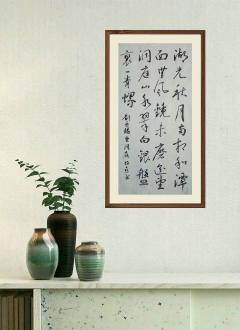 湖光秋月兩相和潭
面無風鏡未磨遙望
洞庭山水翠白銀盤
裏一青螺
劉禹錫望洞庭